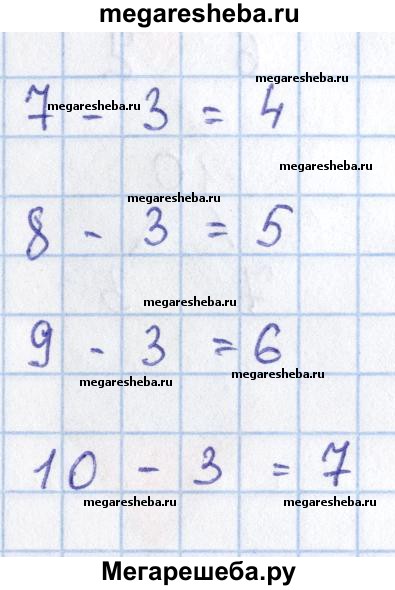 megaresheba.ru
megaresheba.ru
7 - 3 = 4
megaresheba.ru
megaresheba.ru
megaresheba.ru
8 - 3 = 5
megaresheba.ru
9 - 3 = 6
megaresheba.ru
megaresheba.ru
10 - 3 = 7
megaresheba.ru
megaresheba.ru
Мегарешеба.ру